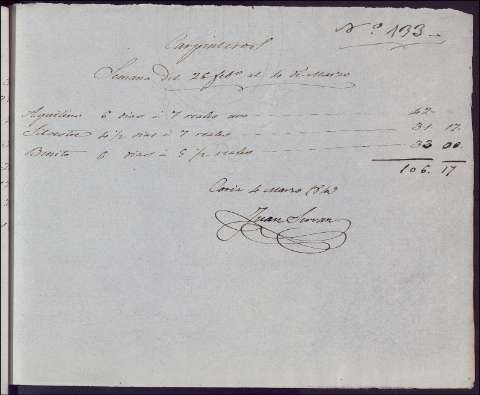 Nº 133
Carpinteros
Semana del 26 febº al 4 de Marzo
Aquilino 6 dias à 7 reales uno 42.
Silvestre 4 1/2 dias à 7 reales 31 17.
Benito 6 dias à 5 1/2 reales 33 00.
106. 17
4 Marzo 1843
Juan